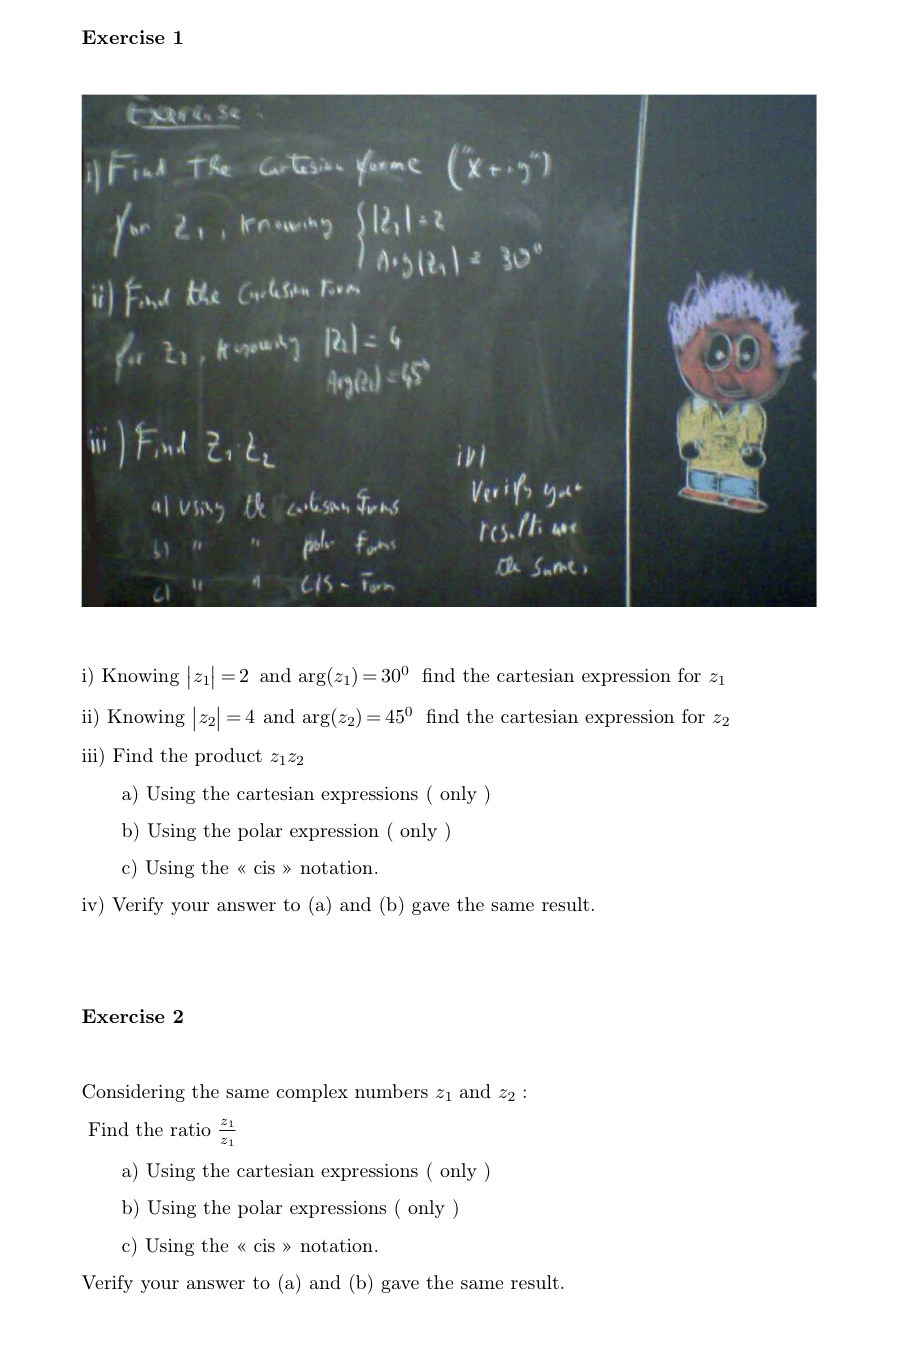 Exercise 1
Exercise :
i) Find The Cartesian forme ("x+iy")
for z₁, knowing { |z₁| = 2
Arg(z₁) = 30⁰
ii) Find the Cartesian Form
for z₂, knowing |z₂| = 4
Arg(z₂) = 45⁰
iii) Find z₁·z₂
a) using the cartesian forms
b) " " polar forms
c) " " CIS - Form
iv)
Verify your
results are
the same,
i) Knowing |z₁| = 2 and arg(z₁) = 30⁰ find the cartesian expression for z₁
ii) Knowing |z₂| = 4 and arg(z₂) = 45⁰ find the cartesian expression for z₂
iii) Find the product z₁z₂
a) Using the cartesian expressions ( only )
b) Using the polar expression ( only )
c) Using the « cis » notation.
iv) Verify your answer to (a) and (b) gave the same result.
Exercise 2
Considering the same complex numbers z₁ and z₂ :
Find the ratio z₁/z₁
a) Using the cartesian expressions ( only )
b) Using the polar expressions ( only )
c) Using the « cis » notation.
Verify your answer to (a) and (b) gave the same result.